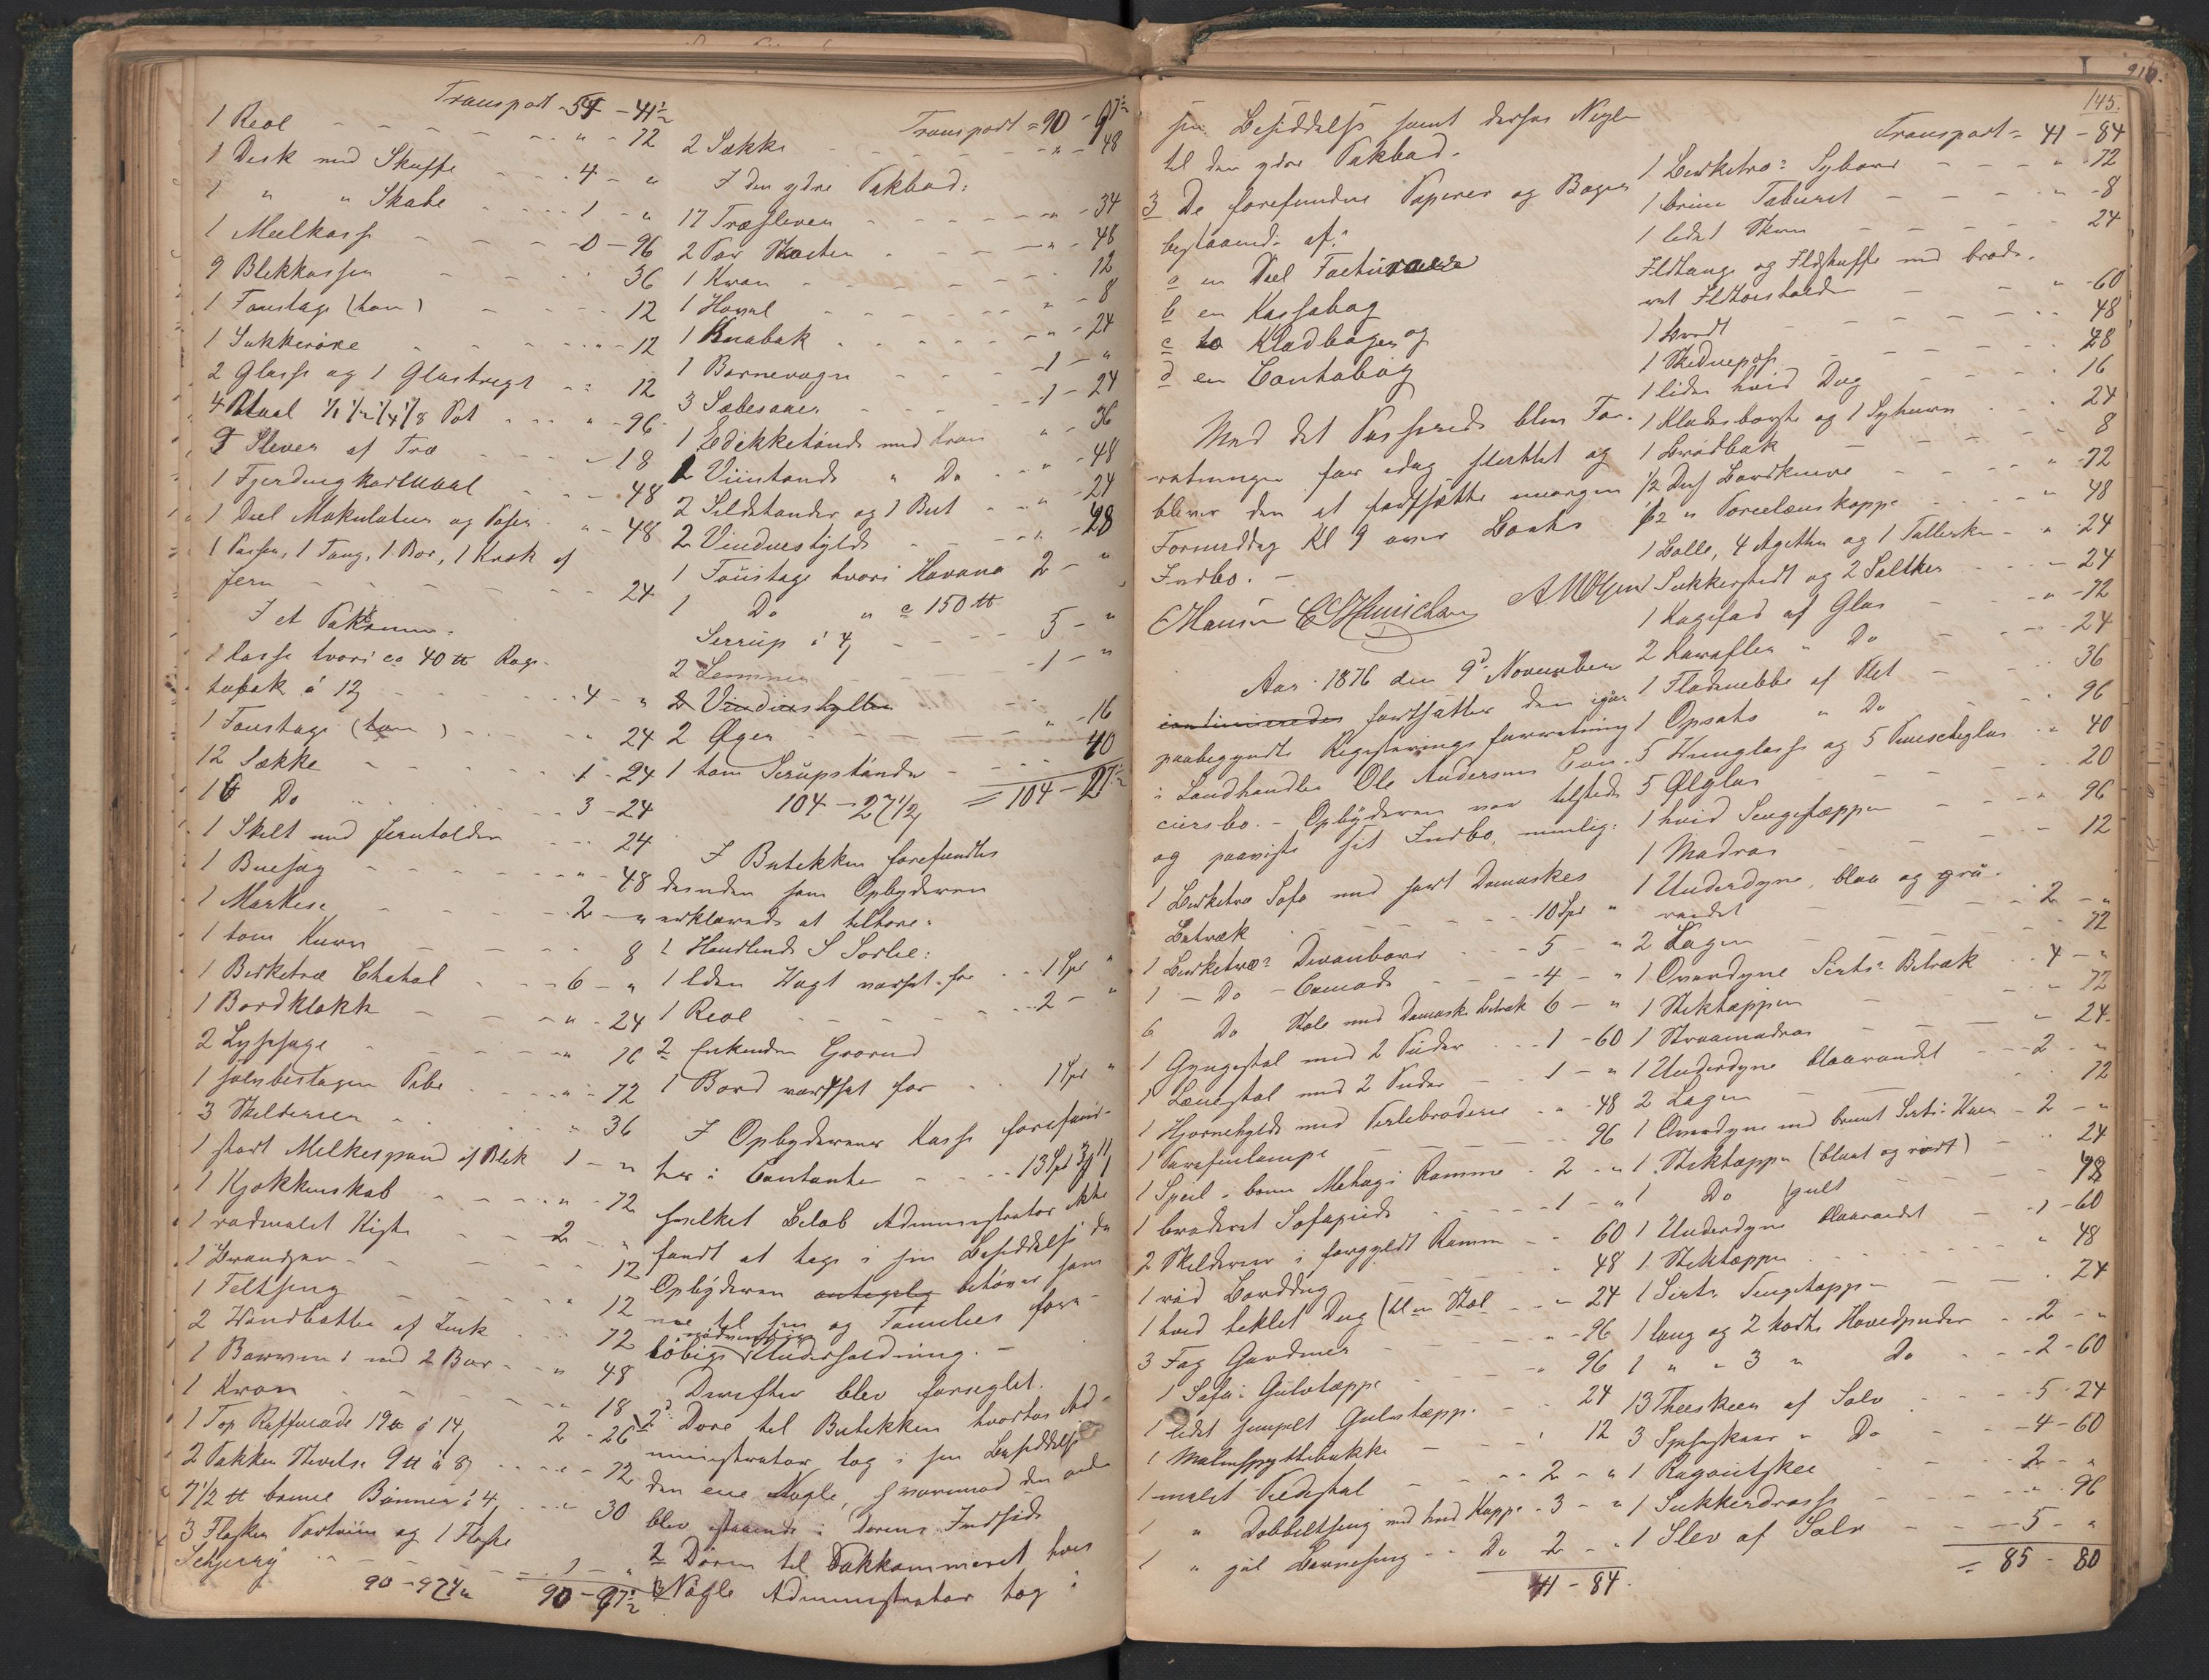 Transport 54 - 41½
1 Reol - - - " - 72
1 Disk med Skuffe - - 4 - "
1 " " Skabe - - 1 - "
1 Meelkasse - - 0 - 96
9 Blikkasser - - 36
1 Foustage (tom) - - 12
1 Sukkerøxe - - " - 12
2 Glasse og 1 Glastragt - - 12
4 Maal 1/1 1/2 1/4 1/8 Pot - - " - 96
9 Slever af Træ - - 18
1 Fjerdingkarmaal - - 48
1 Deel Makulatur og Poser - " - 48
1 Passer, 1 Tang, 1 Bor, 1 Krok af
Jern - - - 24
I et Pakrum.
1 Kasse hvori ca 40 tt Røge-
tobak á 12 - - 4 - "
1 Foustage (tom) - - " 24
12 Sække - - 1 - 24
16 Do - - 3 - 24
1 Skilt med Jernholder - - 24
1 Buesag - - " - 48
1 Markise - - 2 - "
1 tom Kurv - - 8
1 Birketræ Chatol - - 6 - "
1 Bordklokke - - " - 24
2 Lyssage - - " 16
1 sølvbeslagen Pibe - - " - 72
3 Skilderier - - " 36
1 stort Melkespand af Blik 1 - "
1 Kjøkkenskab - - " - 72
1 rødmalet Kiste - - 2 - "
1 Brandspr - - 12
1 Feltseng - - " 12
2 Vandbøtter af Zink - - 72
1 Barvson med 2 Bør - - " 48
1 Kran - - " - 18
1 Top Raffinade 19 tt á 14 2 - 26
2 Pakker Stivelse 9 tt á 8 - - " - 72
7½ tt brune Bønner á 4 - - " 30
3 Flasker Portviin og 1 Flaske
Scherry - - - = 1 - "
90 - 97½ 90 - 97½
Transport = 90 - 97½
2 Sække - - - " - 48
I den ydre Pakbod:
17 Træsleven - - " - 34
2 Par Skosten - - " - 48
1 Kran - - 12
1 Hovel - - " - 8
1 Knabak - - " - 24
1 Barnevogn - - 1 - "
3 Sæbesaaer - - 1 - 24
1 Edikketønde med Kran " - 36
1 Viintønde " Do - " - 48
2 Sildetønder og 1 But - " - 24
2 Vindueshylde - - " - 28
1 Foustage hvori Havana 2 - "
1 Do " c 150 tt
Serrup á 4 - - 5 - "
2 Lemmer - - 1 - "
2 Vindueshylder - -
2 Øger - - " - 16
1 tom Serupstønde - - 40
104 - 27½ = 104 - 27½
I Butikken forefandtes
desuden som Opbyderen
erklærede at tilhøre:
1 Handlende S Sørlie:
1 liden Vægt værdsat for - 1 Spd "
1 Reol - - 2 - "
2 Enkenden Grorud
1 Bord værdsat for - - 1 Spd "
I Opbyderens Kasse forefand-
tes i Contanter - - 13 Spd 3 11
hvilket Beløb Administrator ikke
fandt at tage i sin Besiddelse da
Opbyderen antagelig behøver sam-
me til sin og Families fore-
løbige nødvendige Underholdning. -
Derefter blev forseglet.
2de Døre til Butikken hvortil Ad-
ministrator tog i sin Besiddelse
den ene Nøgle, hvorimod den anden
blev staaende i Dørens Indside
2 Døren til Pakkammeret hvis
Nøgle Administrator tog i
910.
145.
sin Besiddelse samt dessen Nøgle
til den ydre Pakbod.
3 De forefundne Papirer og Bøger
bestaaende af:
a en Deel Facturaer
b en Kassabog
c to Kladbøger og
d en Contobog
Med det Passerede blev For-
retningen for idag sluttet og
bliver den at fortsætte imorgen
Formiddag Kl 9 over Boets
Indbo. -
Aar 1876 den 9d November
continueredes fortsattes den igaar
paabegyndte Registreringsforretning
i Landhandler Ole Andersens Con-
cursbo. - Opbyderen var tilstede
og paaviste sit Indbo, nemlig:
1 Birketræ Sofa med sort Damaskes
Betræk - - 10 Spd "
1 Birketræ: Divanbord - 5 - "
1 - Do - Comode - - 4 - "
6 Do Stole med Damaskes Betræk 6 - "
1 Gyngestol med 2 Puder - - 1 - 60
1 Lænestol med 2 Puder - - 1 - "
1 Hjørnehylde med Perlebroderie - " - 48
1 Parafinlampe - - " 96
1 Speil i brun Mahagi Ramme - 2 - "
1 broderet Sofapude - - 1 - "
2 Skilderier i forgyldt Ramme - - 60
1 rød Borddug - - " 48
1 hvid heklet Dug (til en Stol - - " 24
3 Fag Gardiner - - " - 96
1 Sofa: Gulvtæppe - - " 96
1 lidet simpelt Gulvtæppe - - 24
1 Malmspyttebakke - - " 12
1 malet Piedestal - - 2 - "
1 " Dobbeltseng med hvid Kappe - 3 - "
1 " gul Barneseng - - Do 2 - "
41 - 84.
Transport = 41 - 84
1 Birketræ: Sybord - - " - 72
1 bruun Taburet - - " - 8
1 lidet Skrin - - 24
Ildtang og Ildskuffe med brode-
ret Ildtoisholder - - " - 60
1 Bord - - " 48
1 Skedneposse - - 28
1 liden hvid Dug - - 16
1 Klædesbørste og 1 Syskrin - - 24
1 Brødbak - - 8
½ Dus Bordknive - - " - 72
½ " Porcelænskopper - - " 48
1 Bolle, 4 Agetter og 1 Tallerken - " 24
Sukkerstedt og 2 Saltker - - 24
1 Kagefad af Glas - - " - 72
2 Karafler " Do - - 24
1 Flødenebbe af Plet - - 36
1 Opsats " Do - - 96
5 Vinglasse og 5 Puncheglas - " 40
5 Ølglas - - 20
1 hvid Sengetæppe - - " 96
1 Madras - - 12
1 Underdyne, blaa og grå-
randet - - 2 - "
2 Lagen - - 72
1 Overdyne Sirts: Betræk - 4 - "
1 Stiktæppen - - " 72
1 Straamadras - - " 24
1 Underdyne blaarandet - - 2 - "
2 Lagen - - 72
1 Overdyne med bruunt Sirts: Vaar - 2 - "
1 Stiktæppe (blaat og rødt) - " 24
1 Do (gult - - 48
1 Underdyne blaarandet - 1 - 60
1 Stiktæppe - - " 48
1 Sirts Sengetæppe - - 24
1 lang og 2 korte Hovedpuder - - 2 - "
1 " " 3 " Do - - 2 - 60
13 Theeskeer af Sølv - - 5 - 24
3 Spiseskeer " Do - - 4 - 60
1 Ragoutskee - - 2 - "
1 Sukkerdosse - - " 96
1 Slev af Sølv - - 5 - "
= 85 - 80